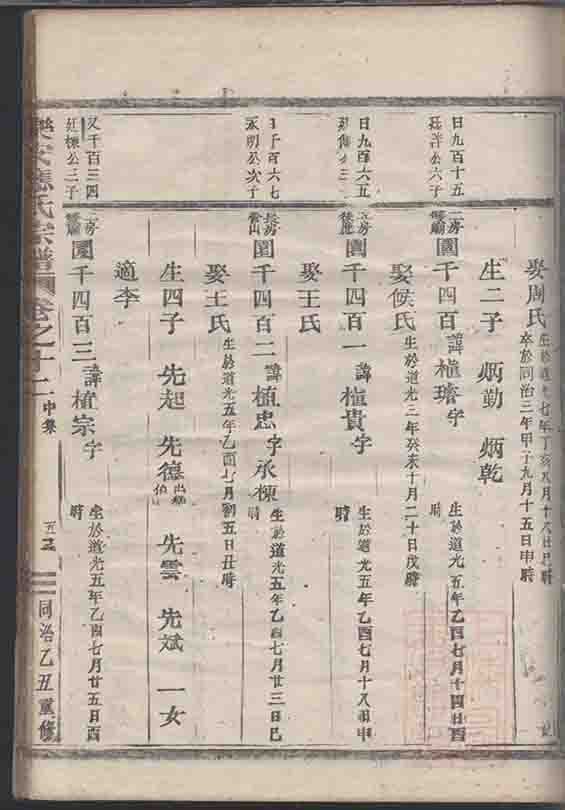 娶周氏
生於道光七年丁亥八月十八日巳時
卒於同治三年甲子九月十五日申時
生二子 炳勤 炳乾
日九百十五
廷洋公六子
二房
圜千四百 諱植璿字
生於道光五年乙酉七月十四日酉
時
娶侯氏 生於道光三年癸未十月二十日戊時
日九百六五
圜千四百一 諱植貴字
生於道光五年乙酉七月十八日申
時
娶王氏
日千百六七
永明公次子
長房
圜千四百二 諱植忠字承棟
生於道光五年乙酉七月廿三日巳
時
娶王氏 生於道光五年乙酉七月初五日丑時
生四子 先起 先德 先雲 先斌 一女
適李
又千百三四
廷棟公三子
二房
圜千四百三 諱植宗字
生於道光五年乙酉七月廿五月酉
時
樂安應氏宗譜 卷之十二 中集
同治乙丑重修